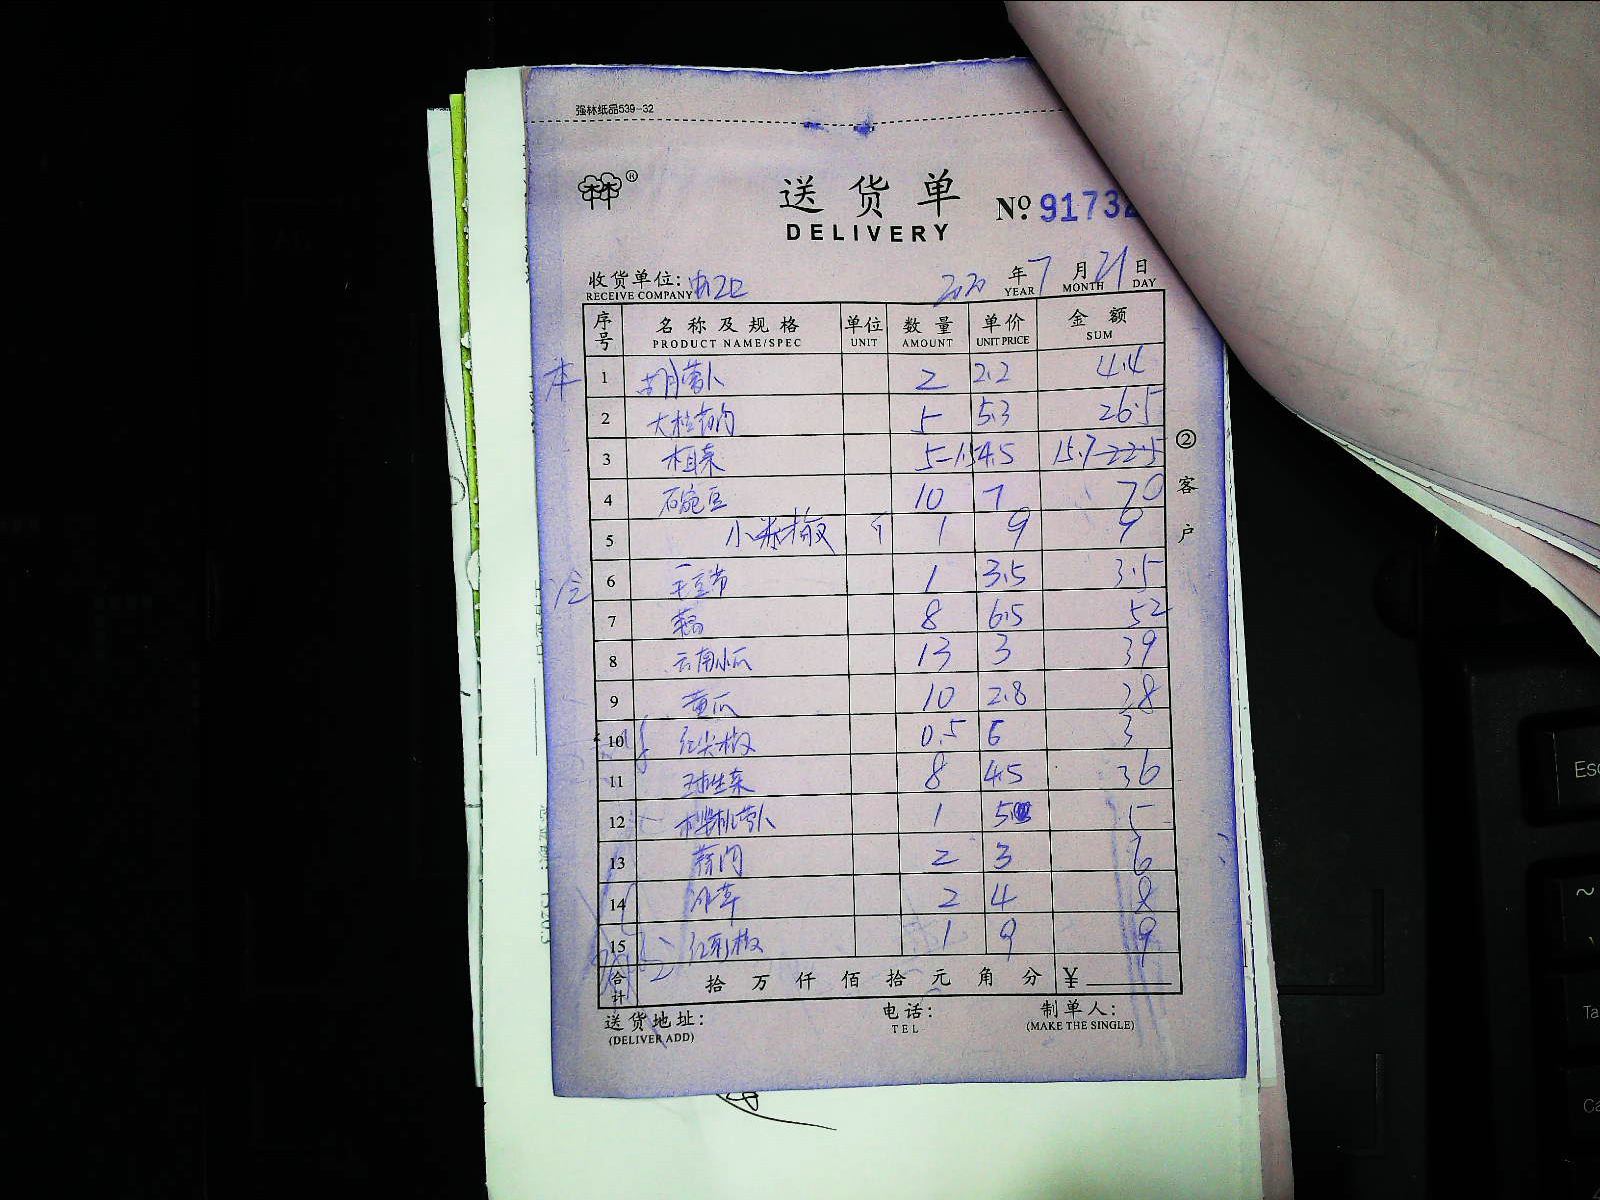 强林纸品539-32
®
送货单
DELIVERY
No 91732
收货单位:
RECEIVE COMPANY
2020 年 7 月 21 日
YEAR MONTH DAY
序号 名称及规格 单位 数量 单价 金额
PRODUCT NAME/SPEC UNIT AMOUNT UNIT PRICE SUM
本 1 胡萝卜 2 2.2 4.4
2 5 5.3 26.5
3 5-1.5 4.5 15.7 22.5
4 石豌豆 10 7 70
5 小米椒 个 1 9 9
冷 6 1 3.5 3.5
7 藕 8 6.5 52
8 云南小瓜 13 3 39
9 黄瓜 10 2.8 28
10 红尖椒 0.5 6 3
11 球生菜 8 4.5 36
12 樱桃萝卜 1 5 5
13 2 3 6
14 冰草 2 4 8
15 红彩椒 1 9 9
合计 拾 万 仟 佰 拾 元 角 分 ¥
送货地址:
(DELIVER ADD)
电话:
TEL
制单人:
(MAKE THE SINGLE)
② 客户
Esc
~
Ta
Ca